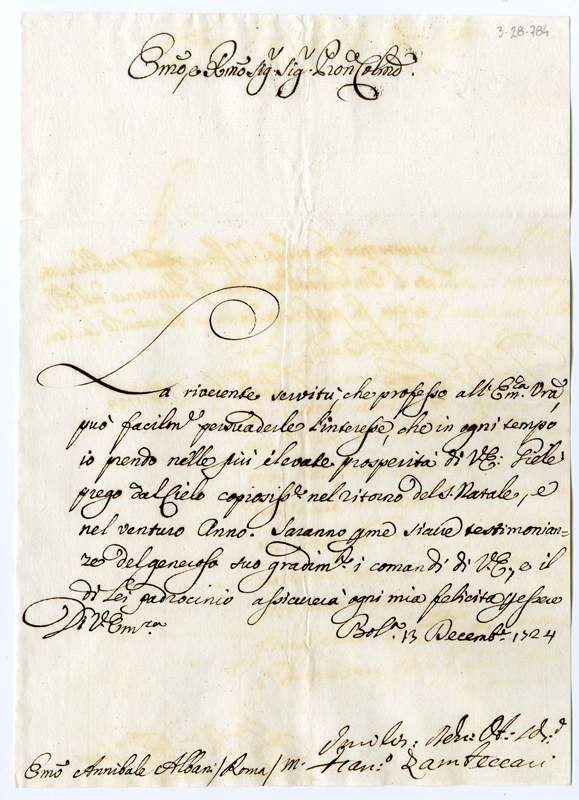 3-28-784
Emõ, e Rmõ Sig.r Sig.r Pron Colmõ.
La riverente servitù, che professo all'Em.za Vrã,
può facilm.te persuaderle l'interesse, che in ogni tempo
io prendo nelle più elevate prosperità di V.E. Giele
prego dal Cielo copiosiss.e nel ritorno del S. Natale, e
nel venturo Anno. Saranno p me sicure testimonian=
ze del generoso suo gradim.to i comandi di V.E., e il
di Lei padrocinio assicurerà ogni mia felicità p essere
Di V. Em.za
Bol.a 13 Decemb.e 1724
Umilis: Dev: Ob: 
Emõ Annibale Albani / Roma / m.
Fran.o Zambeccari